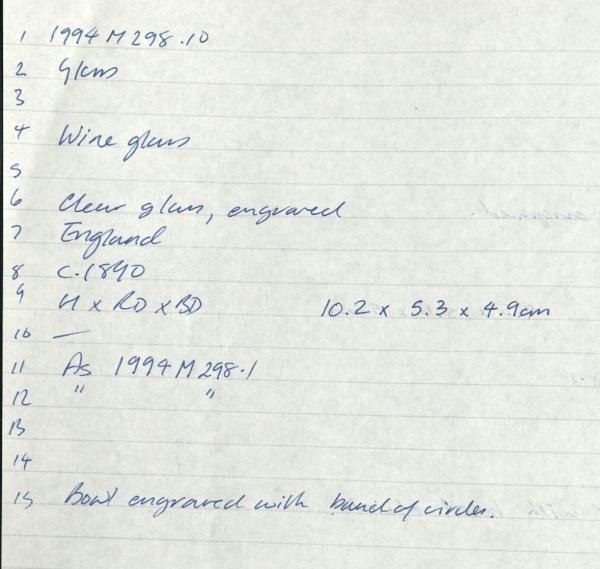 1 1994 M 298.10
2 Glass
3
4 Wine glass
5
6 Clear glass, engraved
7 England
8 c.1890
9 H x RD x BD 10.2 x 5.3 x 4.9cm
10 —
11 As 1994 M 298.1
12 " "
13
14
15 Bowl engraved with band of circles.